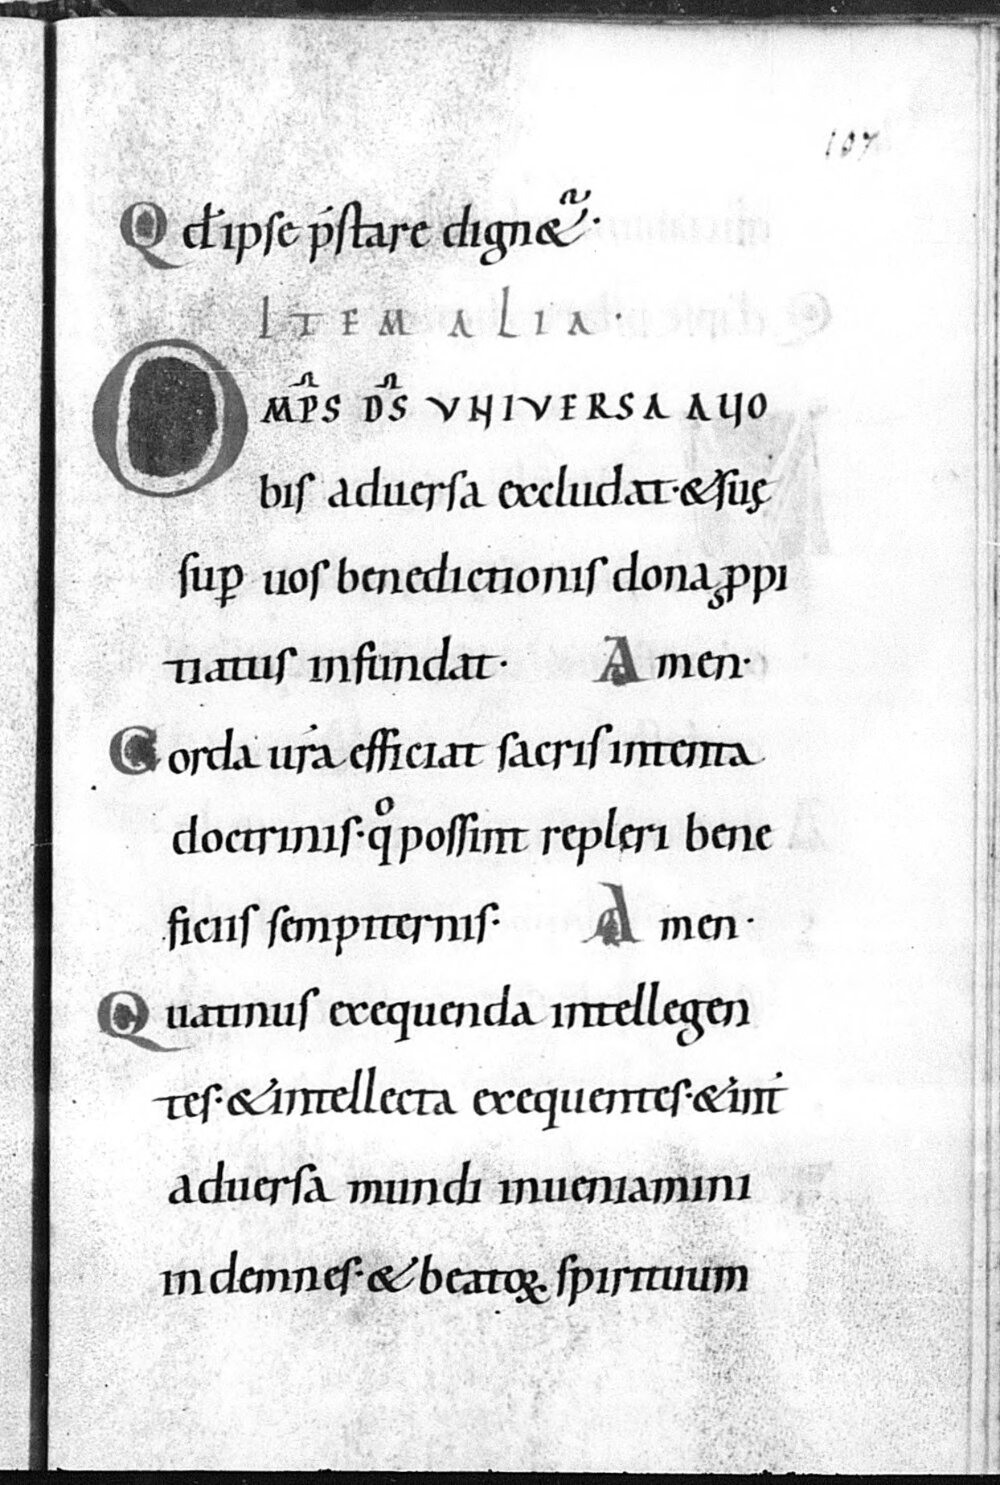 107
Qđ ipse p̄stare dignet᷑·
ITEM ALIA·
OMP̄S D̄S VNIVERSA A UO
bis aduersa excludat·& suę
sup̱ uos benedictionis dona ꝓpi
tiatus infundat· Amen·
Corda ur̄a efficiat sacris intenta
doctrinis· qͦ possint repleri bene
ficiis sempiternis· Amen·
Quatinus exequenda intellegen
tes·& intellecta exequentes·& int̄
aduersa mundi inueniamini
indemnes·& beatoꝝ spirituum